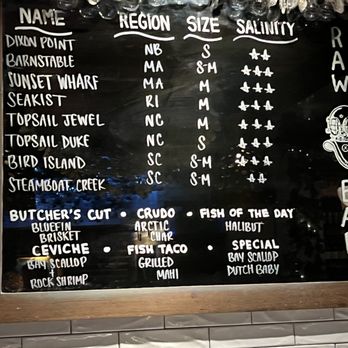 NAME REGION SIZE SALINITY
DIXON POINT NB S
BARNSTABLE MA S-M
SUNSET WHARF MA M
SEAKIST RI M
TOPSAIL JEWEL NC M
TOPSAIL DUKE NC S
BIRD ISLAND SC S-M
STEAMBOAT CREEK SC S-M
BUTCHER'S CUT • CRUDO • FISH OF THE DAY
BLUEFIN ARCTIC HALIBUT
BRISKET CHAR
CEVICHE • FISH TACO • SPECIAL
BAY SCALLOP GRILLED BAY SCALLOP
+ ROCK SHRIMP MAHI DUTCH BABY
RAW
BA